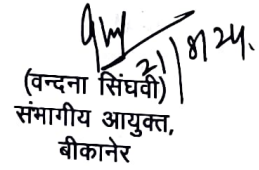 21/8/24.
(वन्दना सिंघवी)
संभागीय आयुक्त,
बीकानेर